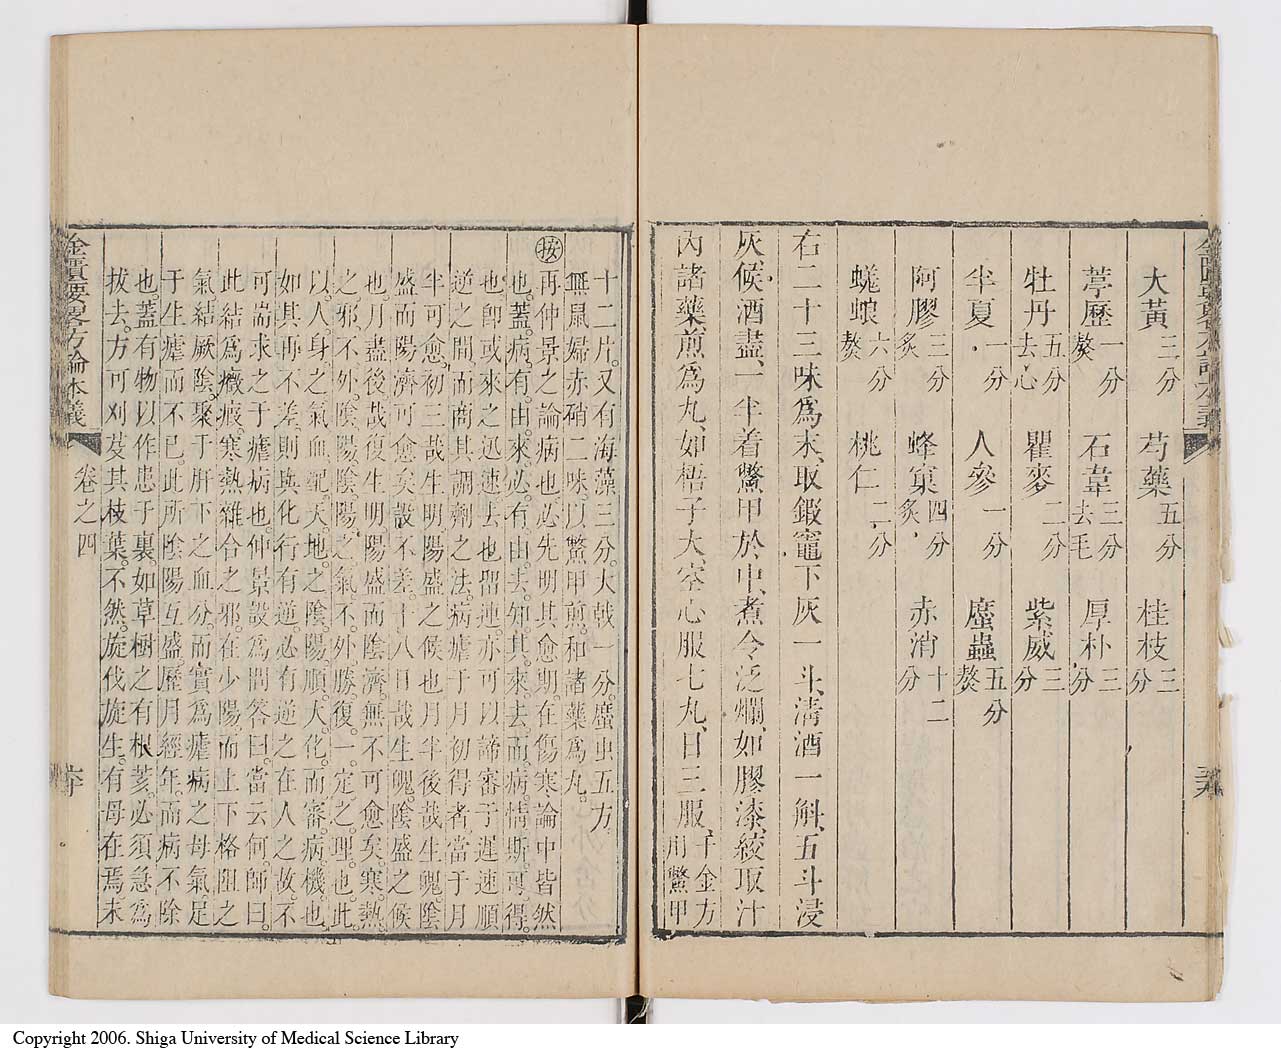 大黃三分　芍藥五分　桂枝三分
葶歷一分熬　石韋三分去毛　厚朴三分
牡丹五分去心　瞿麥二分　紫威三分
半夏一分　人參一分　䗪蟲五分熬
阿膠三分炙　蜂窠四分炙　赤消十二分
蜣蜋六分熬　桃仁二分
右二十三味爲末取鍛竈下灰一斗清酒一斛五斗浸
灰候酒盡一半着鱉甲於中煮令泛爛如膠漆絞取汁
內諸藥煎爲丸如梧子大空心服七丸日三服千金方用鱉甲
十二片。又有海藻三分。大戟一分。䗪虫五方
無鼠婦赤硝二味。以鱉甲煎。和諸藥爲丸。
按再仲景之論病也。必先明其愈期。在傷寒論中皆然
也。蓋病有由來。必有由去。知其來去。而病情斯可得。
也。卽或來之迅速。去也留連。亦可以諦審于遲速順
逆之間。而商其調劑之法。病瘧于月初得者。當于月
半可愈。初三哉生明陽盛之候也。月半後哉生魄。陰
盛而陽濟可愈矣。設不差。十八日哉生魄。陰盛之候
也。月盡後哉復生明。陽盛而陰濟。無不可愈矣。寒熱
之邪。不外陰陽。陰陽之氣。不外勝復。一定之理也。此
以人身之氣血。配天地之陰陽。順大化。而審病機也。
如其再不差。則與化行有逆。必有逆之在人之故。不
可喘求之于瘧病也。仲景設爲問答曰。當云何。師曰。
此結爲癥瘕。寒熱雜合之邪。在少陽。而上下格阻之
氣結厥陰。聚于肝下之血分。而實爲瘧病之母氣。足
于生瘧而不已。此所陰陽互盛。歷月經年。而病不除
也。蓋有物以作患于裏。如草樹之有根荄。必須急爲
拔去。方可刈芟其枝葉。不然旋伐旋生。有母在焉。未
金匱要畧方論本義
卷之四
Copyright 2006. Shiga University of Medical Science Library